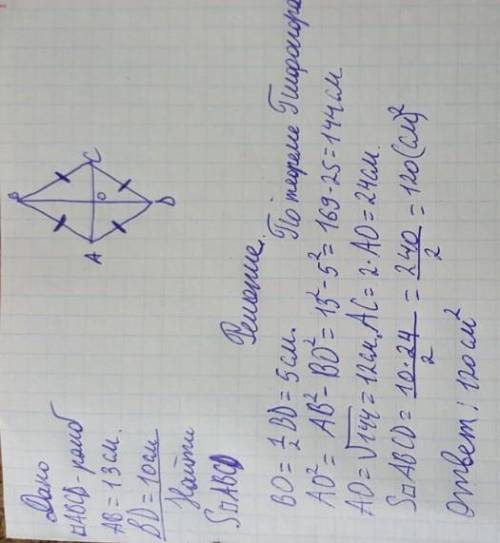 Дано
□ABCD-ромб
AB = 13см.
BD = 10см
Найти
S□ABCD
B
A
C
O
D
Решение.
BO = 1/2 BD = 5см. По теореме Пифагора
AO² = AB² - BO² = 13² - 5² = 169 - 25 = 144см
AO = √144 = 12см, AC = 2·AO = 24см.
S□ABCD = 10·24/2 = 240/2 = 120(см)²
Ответ: 120см²